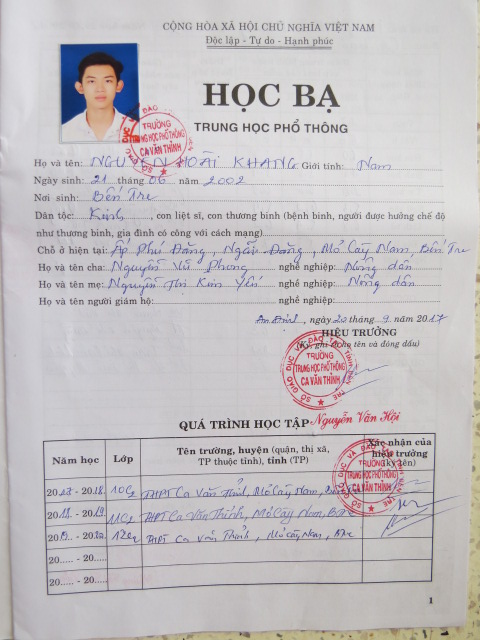 CỘNG HÒA XÃ HỘI CHỦ NGHĨA VIỆT NAM
Độc lập - Tự do - Hạnh phúc
HỌC BẠ
TRUNG HỌC PHỔ THÔNG
SỞ GIÁO DỤC VÀ ĐÀO TẠO
TRƯỜNG
TRUNG HỌC PHỔ THÔNG
CA VĂN THỈNH
Họ và tên: NGUYỄN HOÀI KHANG Giới tính: Nam
Ngày sinh: 21 tháng 06 năm 2002
Nơi sinh: Bến Tre
Dân tộc: Kinh, con liệt sĩ, con thương binh (bệnh binh, người được hưởng chế độ
như thương binh, gia đình có công với cách mạng)
Chỗ ở hiện tại: Ấp Phú Đăng, Ngãi Đăng, Mỏ Cày Nam, Bến Tre
Họ và tên cha: Nguyễn Vũ Phong nghề nghiệp: Nông dân
Họ và tên mẹ: Nguyễn Thị Kim Yến nghề nghiệp: Nông dân
Họ và tên người giám hộ: nghề nghiệp:
An Định, ngày 20 tháng 9 năm 2017
HIỆU TRƯỞNG
(Ký, ghi rõ họ tên và đóng dấu)
SỞ GIÁO DỤC VÀ ĐÀO TẠO TỈNH BẾN TRE
TRƯỜNG
TRUNG HỌC PHỔ THÔNG
CA VĂN THỈNH
QUÁ TRÌNH HỌC TẬP Nguyễn Văn Hội
Năm học Lớp Tên trường, huyện (quận, thị xã, TP thuộc tỉnh), tỉnh (TP) Xác nhận của hiệu trưởng (ký tên)
2017 - 2018 THPT Ca Văn Thỉnh, Mỏ Cày Nam,
2018 - 2019 THPT Ca Văn Thỉnh, Mỏ Cày Nam, BTre
2019 - 2020 THPT Ca Văn Thỉnh, Mỏ Cày Nam, BTre
20..... - 20.....
20..... - 20.....
1